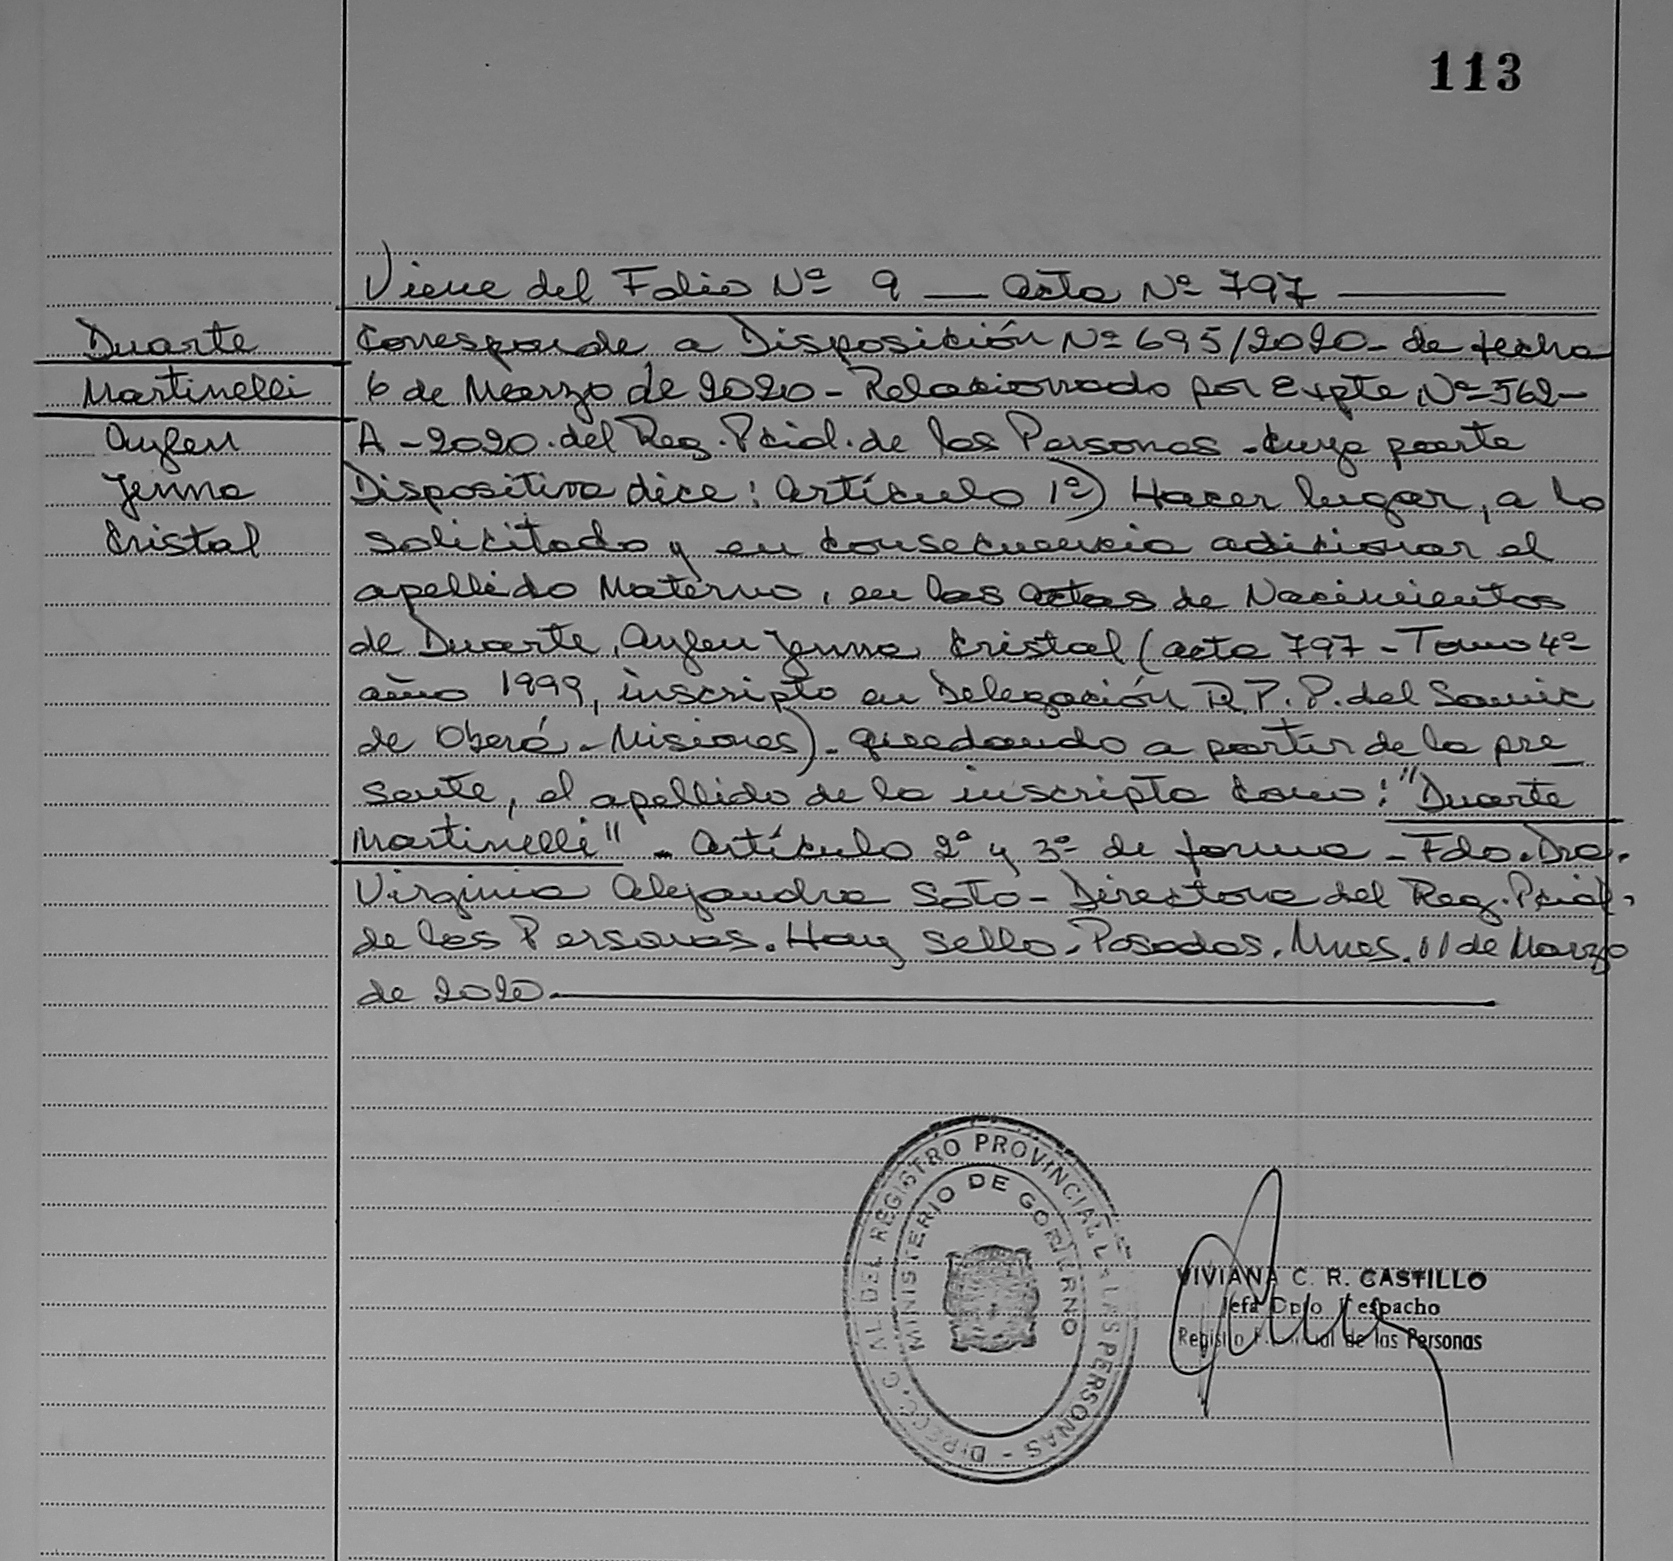 113
Viene del Folio Nº 9 — Acta Nº 797 —
Duarte
Martinelli
Aylen
Jenna
Cristal
Corresponde a Disposición Nº 695/2020- de fecha
6 de Marzo de 2020 - Relacionado por Expte Nº 562-
A - 2020. del Reg. Pcial. de las Personas. Cuya parte
Dispositiva dice: Artículo 1º) Hacer lugar, a lo
solicitado y en consecuencia adicionar el
apellido Materno, en las actas de Nacimientos
de Duarte, Aylen Jenna Cristal (acta 797 - Tomo 4º
año 1999, inscripto en Delegación R.P.P. del Samic
de Oberá - Misiones). quedando a partir de la pre
sente, el apellido de la inscripta como: "Duarte
Martinelli" - Artículo 2º y 3º de forma - Fdo. Dra.
Virginia Alejandra Soto - Directora del Reg. Pcial.
de las Personas. Hay sello. Posadas, Mnes. 11 de Marzo
de 2020
DIRECC. G AL DEL REGISTRO PROVINCIAL DE LAS PERSONAS -
MINISTERIO DE GOBIERNO
VIVIANA C. R. CASTILLO
Jefa Dpto Despacho
Registro de las Personas